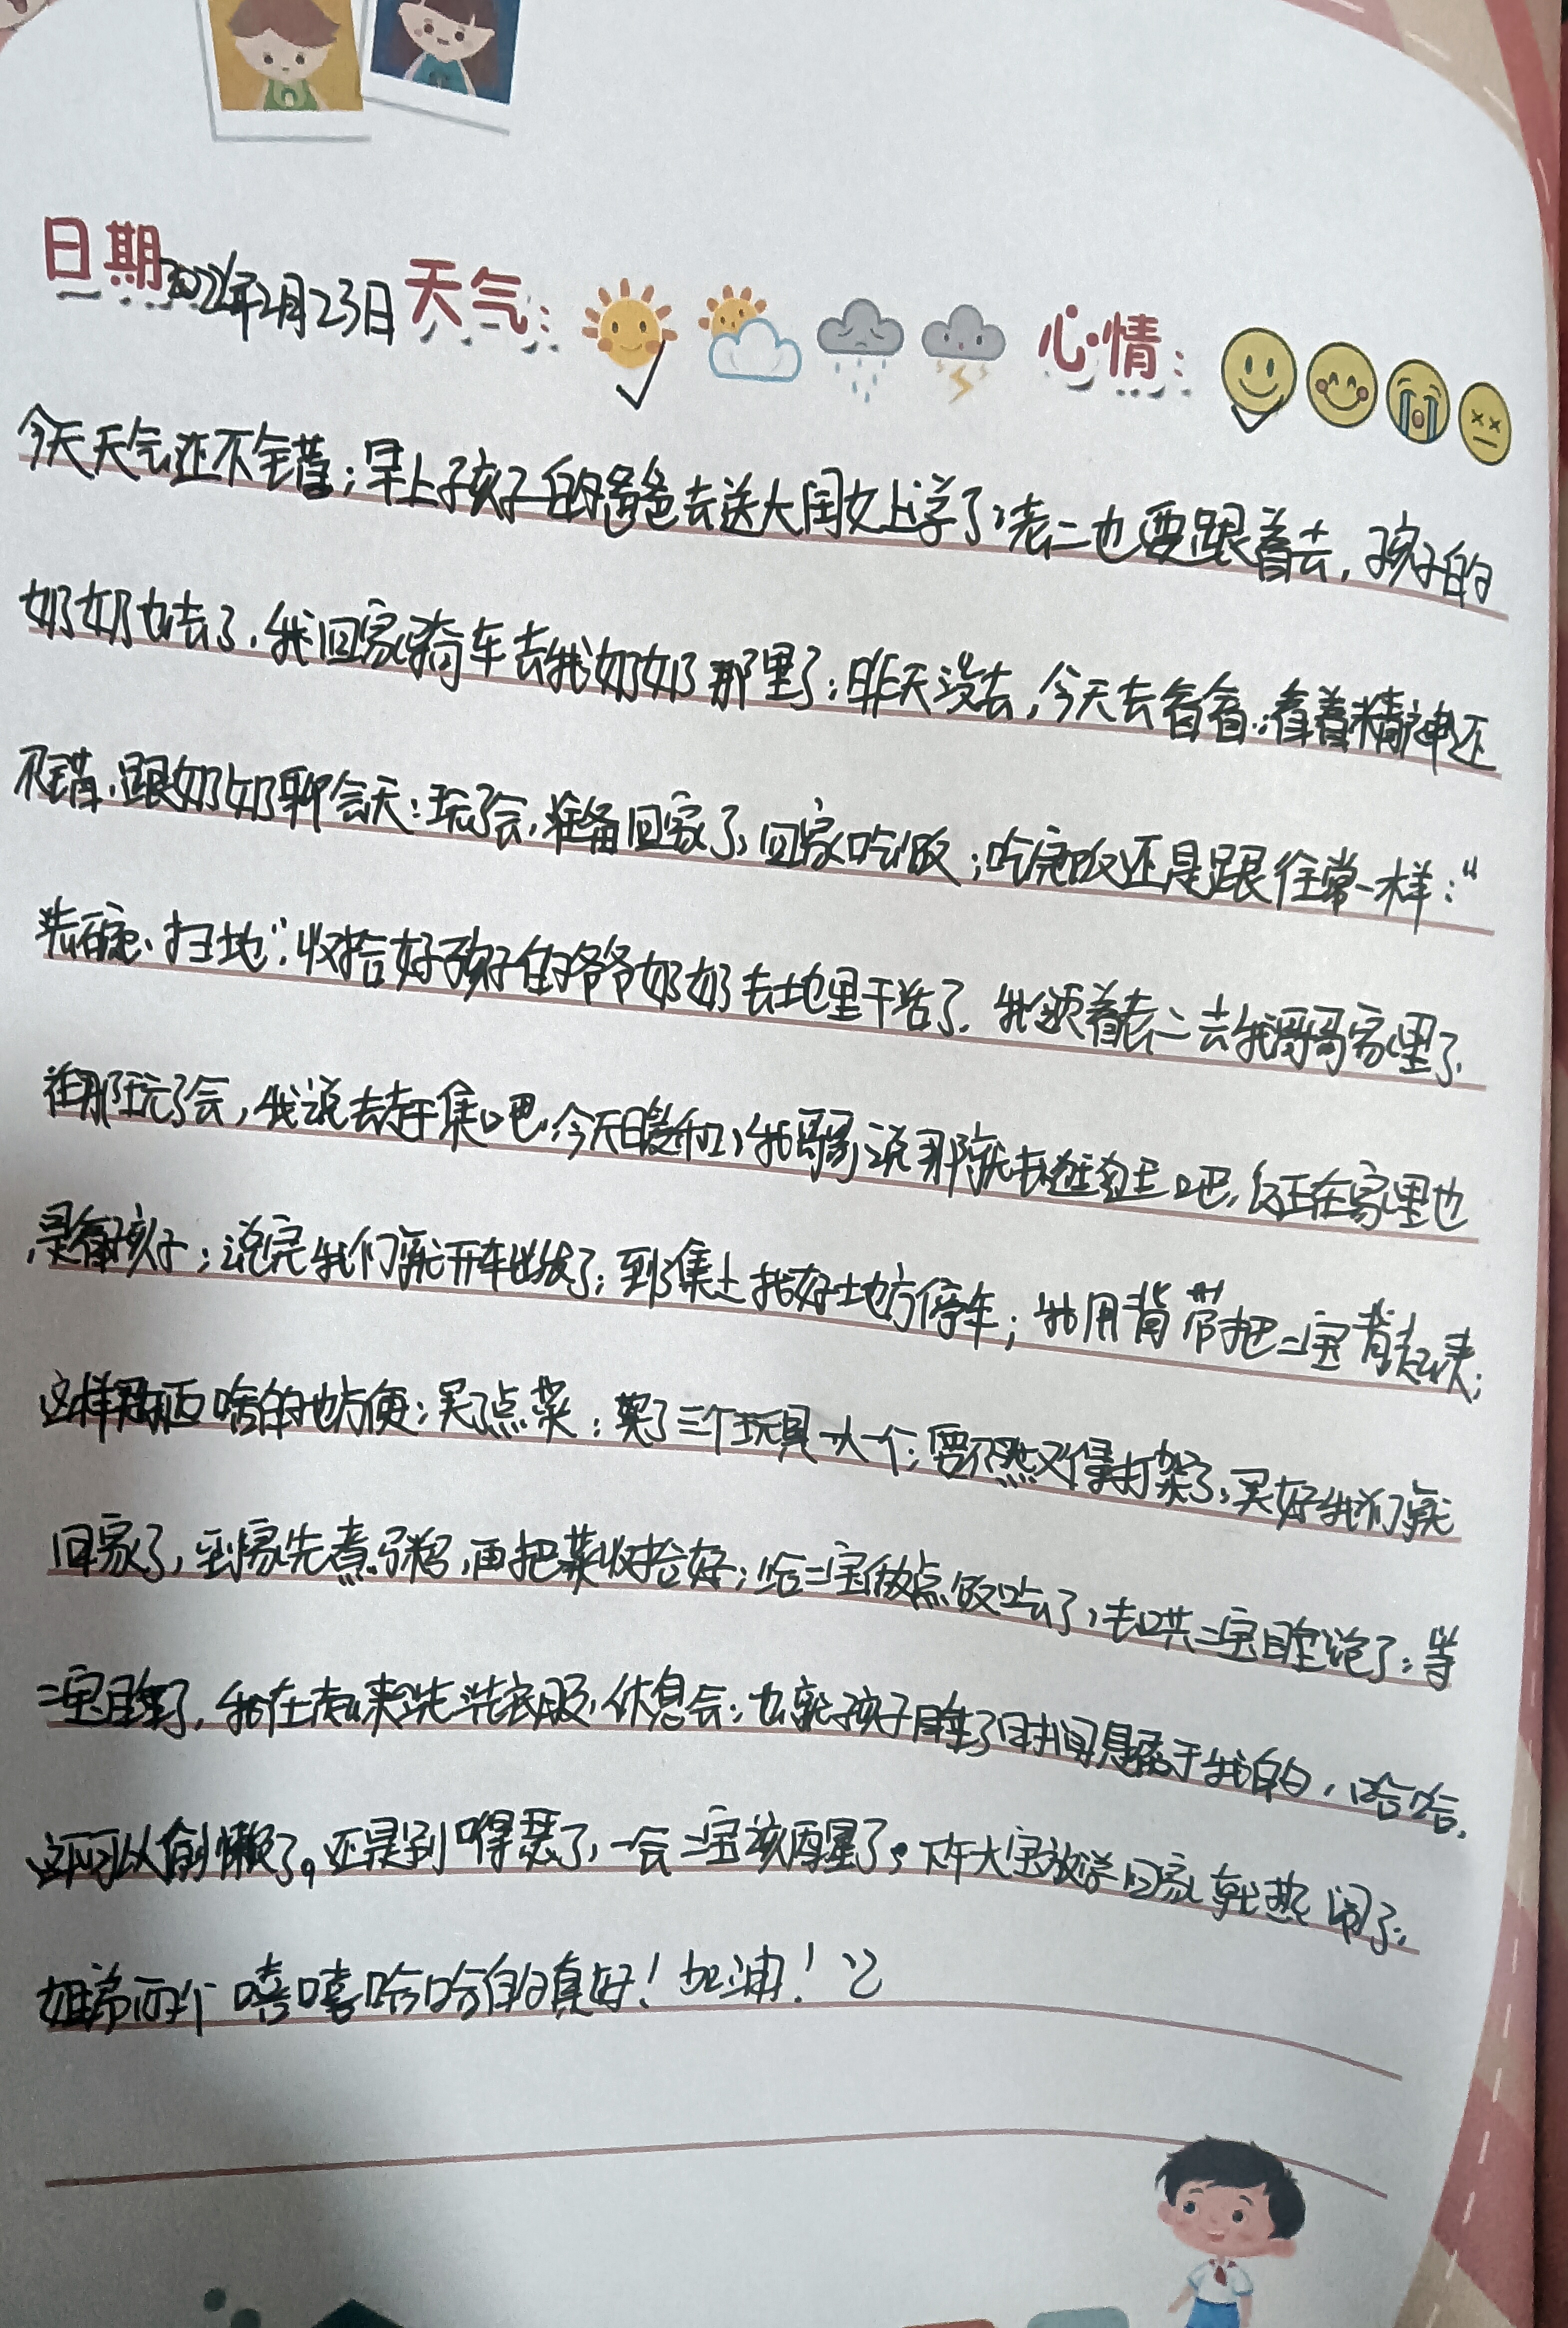 日期2022年2月23日 天气: 心情:
今天天气还不错;早上孩子的爸爸去送大闺女上学了;老二也要跟着去,孩子的
奶奶也去了,我回家骑车去我奶奶那里了;昨天没去,今天去看看;看着精神还
不错,跟奶奶聊会天;玩了会,准备回家了,回家吃饭;吃完饭还是跟往常一样:“
洗碗、扫地”;收拾好孩子的爷爷奶奶去地里干活了.我领着老二去我哥哥家里了.
在那玩了会,我说去赶集吧,今天暖和,我哥哥说那就去逛逛吧,反正在家里也
是看孩子;说完我们就开车出发了;到了集上找好地方停车;我用背带把二宝背起来;
这样买东西啥的也方便;买了点菜;买了三个玩具一人一个;要不然又得打架了,买好我们就
回家了,到家先煮了粥,再把菜收拾好;给二宝做点饭吃了,去哄二宝睡觉了;等
二宝睡了,我在起来洗洗衣服,休息会;也就孩子睡了时间是属于我的,哈哈.
还可以偷偷懒了。还是别嘚瑟了,一会二宝该醒了。下午大宝放学回家就热闹了.
姐弟两个嘻嘻哈哈的真好!加油!